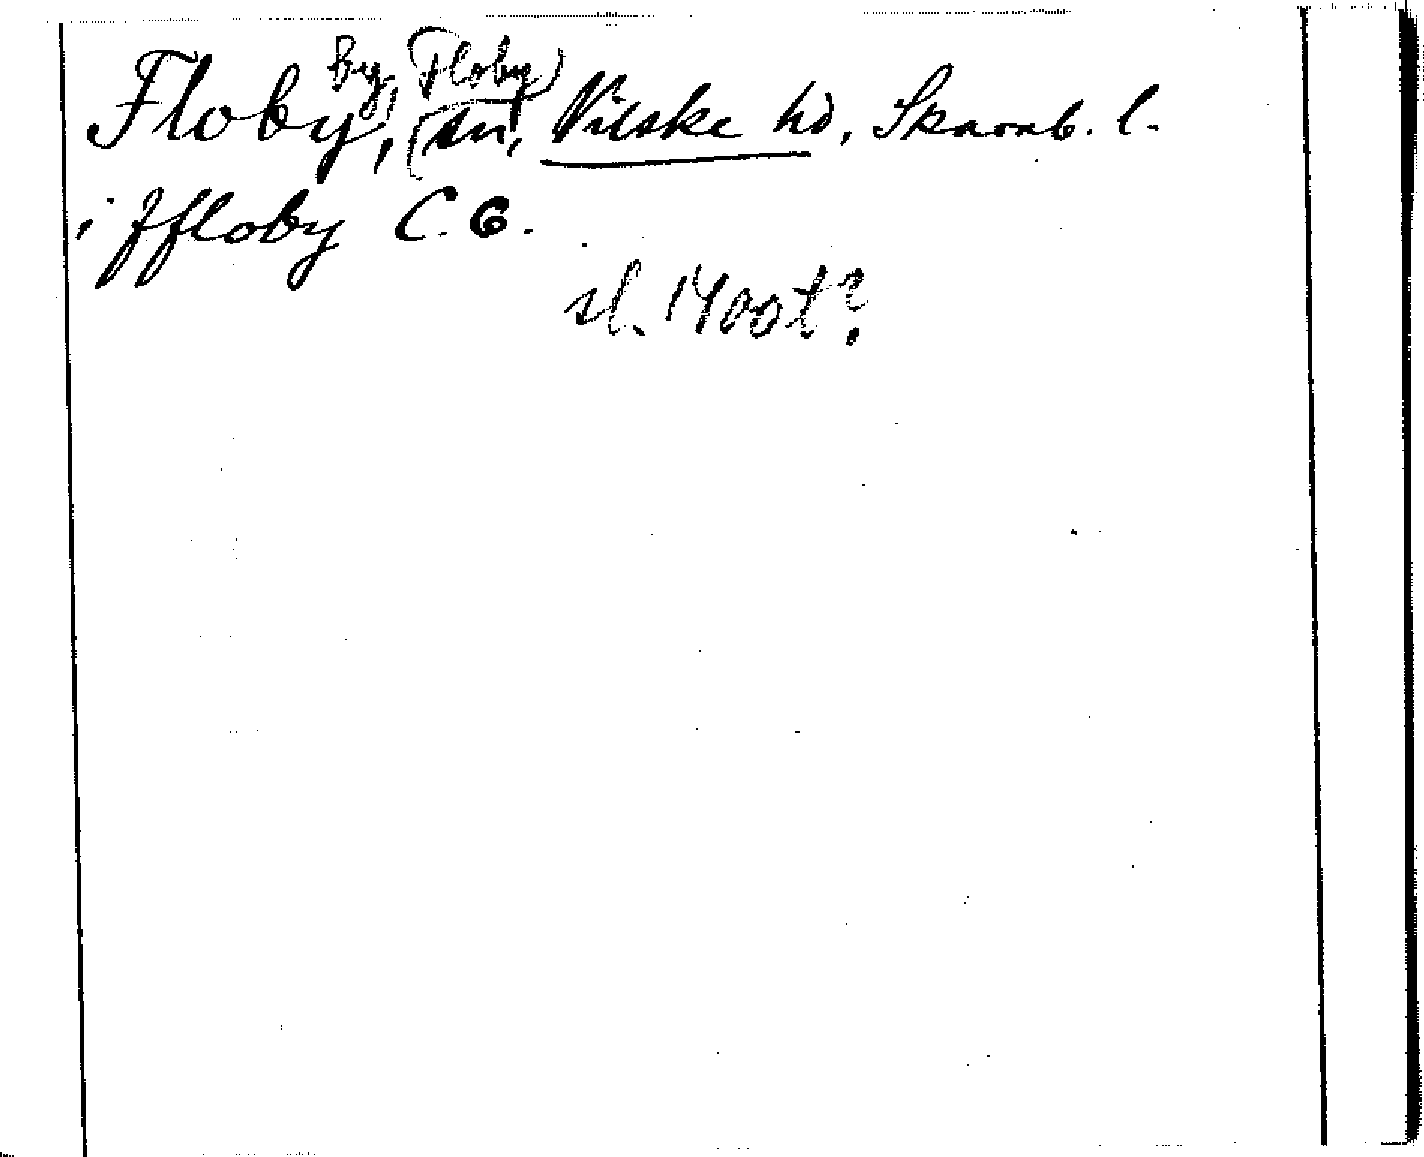 by, (Floby)
Floby, (sn, Vilske hd, Skarab. l.
i ffloby C. 6.
sl. 1400t?